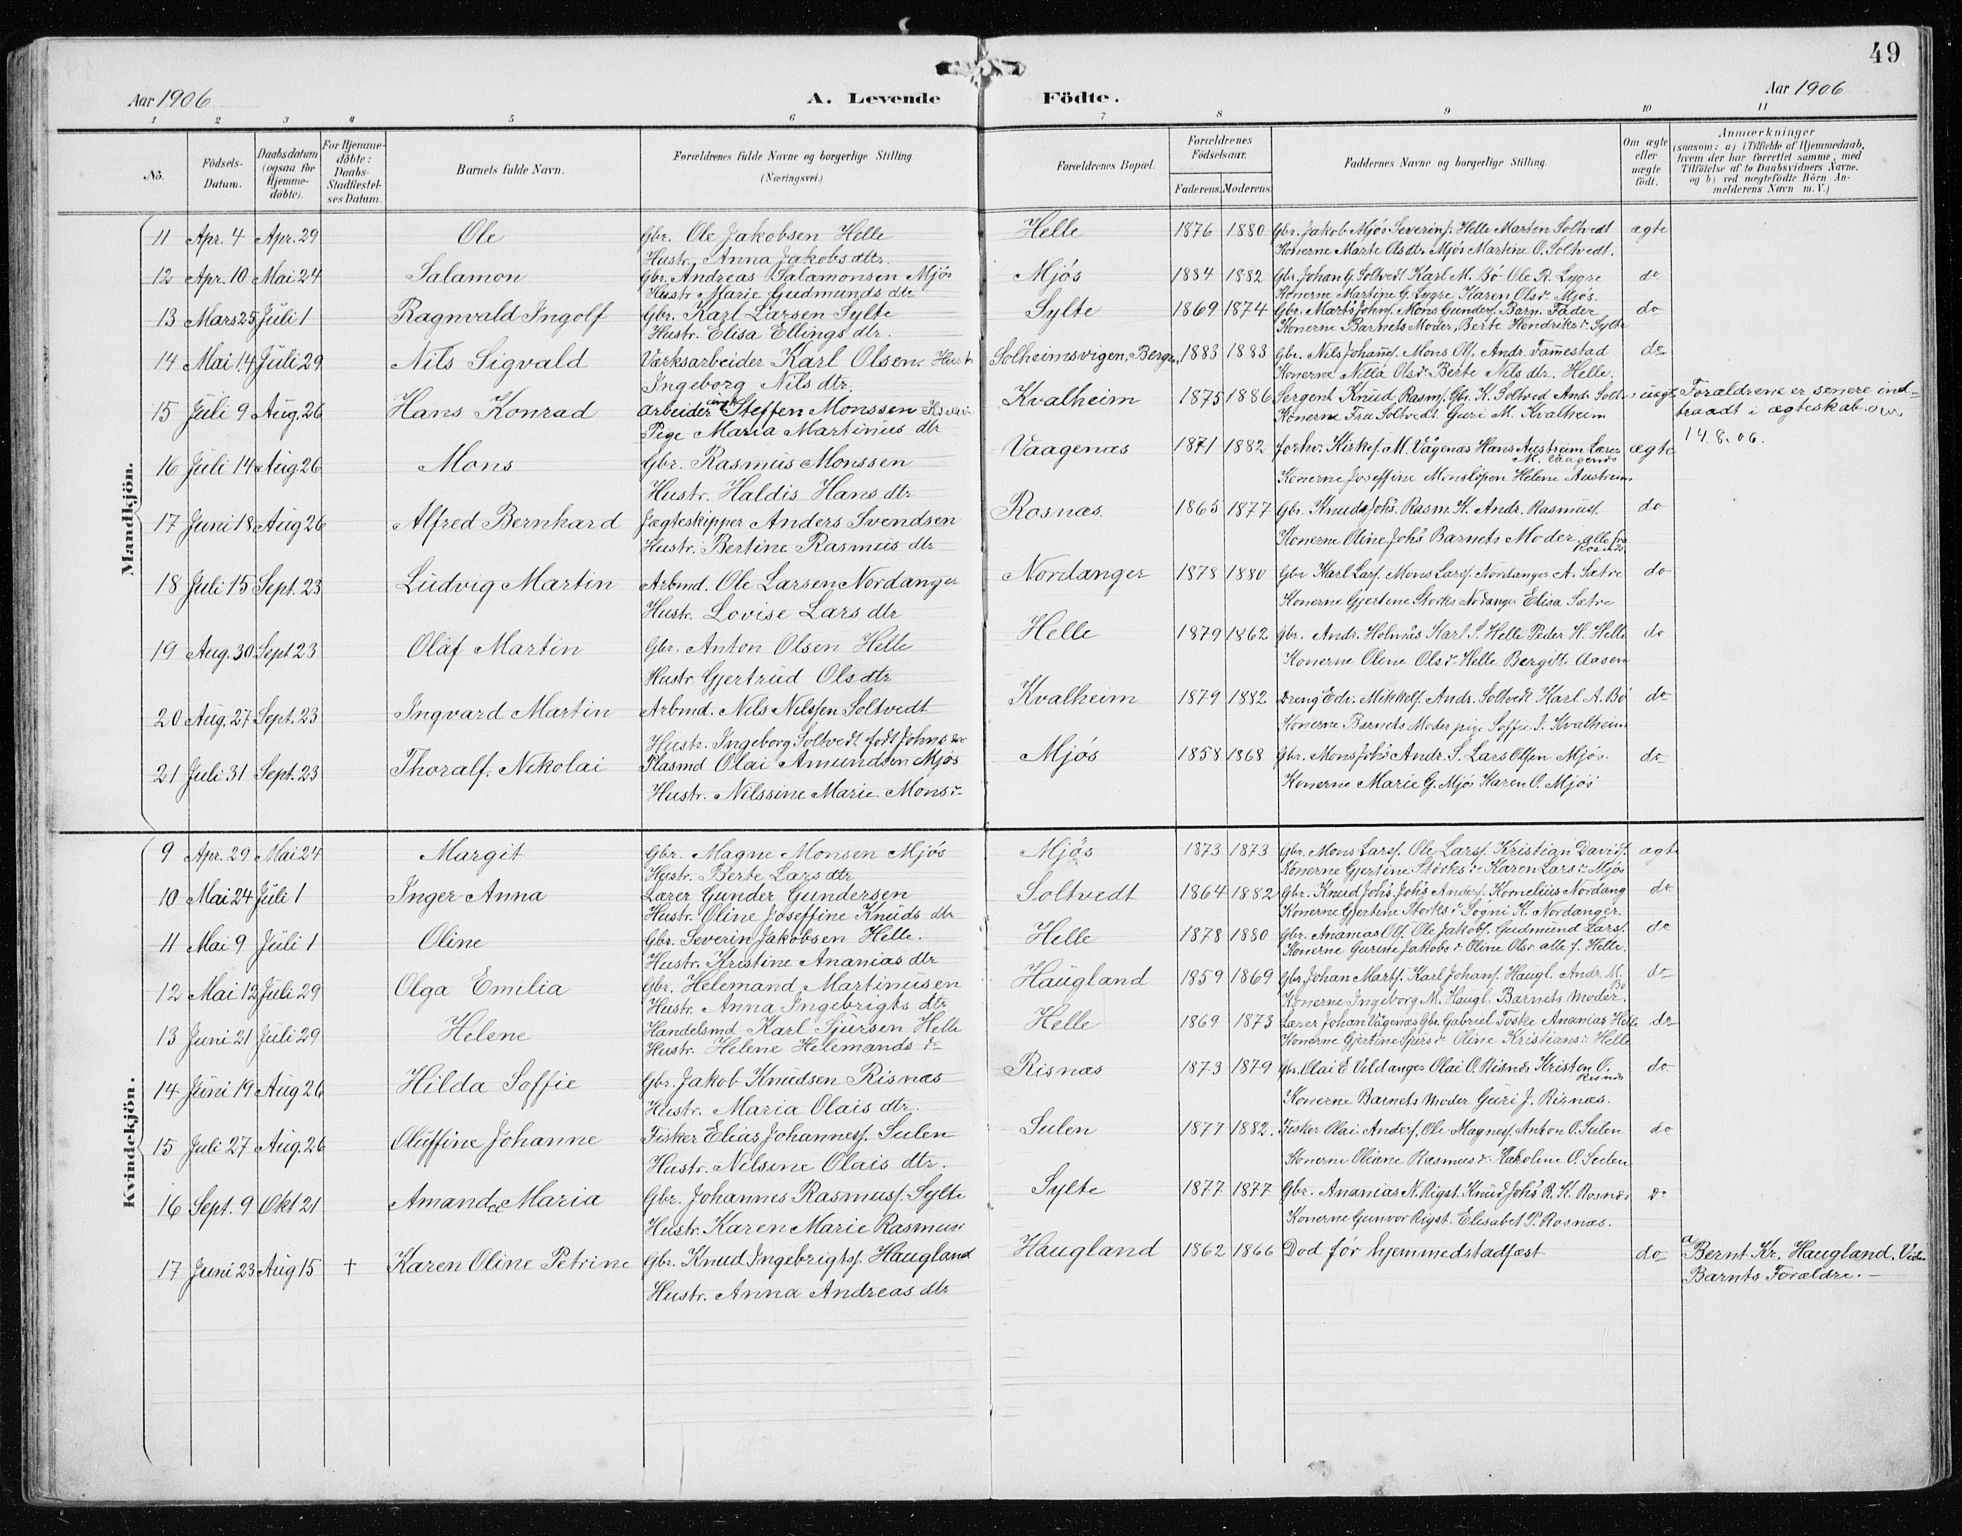 49
Aar 1906 A. Levende Födte. Aar 1906
1 2 3 4 5 6 7 8 9 10 11
No. Födsels-Datum. Daabsdatum (ogsaa for Hjemme-døbte). For Hjemme-døbte: Daabs-Stadfæstel-ses Datum. Barnets fulde Navn. Forældrenes fulde Navne og borgerlige Stilling (Næringsvei.) Forældrenes Bopæl. Forældrenes Födselsaar. Faderens. Moderens. Faddernes Navne og borgerlige Stilling. Om ægte eller uægte födt. Anmærkninger (saasom: a) i Tilfælde af Hjemmedaab, hvem der har forrettet samme, med Tilföielse af to Daabsvidners Navne. og b) ved uægtefödte Börn An-melderens Navn m. V.)
Mandkjön.
11 Apr. 4 Apr. 29 Ole Gbr. Ole Jakobsen Helle Helle 1876 1880 Gbr. Jakob Mjøs Severin Helle Marten Soltvedt ægte
Hustr. Anna Jakobs dtr. Konerne Marte Olsdtr Mjös Martine O. Soltvedt.
12 Apr. 10 Mai 24 Salamon Gbr. Andreas Salamonsen Mjøs Mjøs 1884 1882 Gbr Johan G. Soltvedt Karl M. Bö Ole R. Lygre do
Hustr. Marie Gudmunds dtr Konerne Martine G. Lygre Karen Ols dr Mjös.
13 Mars 25 Juli 1 Ragnvald Ingolf Gbr. Karl Larsen Sylte Sylte 1869 1874 Gbr. Johs. Mons Gunders. Barn. Fader do
Hustr. Elisa Ellings dtr Konerne Barnets Moder, Berte Hendriks dr Sylte
14 Mai 14 Juli 29 Nils Sigvald Værksarbeider Karl Olsen. Hustr Solheimsvigen, Bergen 1883 1883 Gbr. Nils Johans. Mons Ols. Andr. Tamestad do
Ingeborg Nils dtr. Konerne Olsdr Berte Nils dtr. Helle.
15 Juli 9 Aug. 26 Hans Konrad Arbeider ungk Steffen Monssen Kvalheim 1875 1886 Sergent Knud Rasms. Gbr. K. Soltved Andr. Soltv. uægte Forældrene er senere ind-
Pige Maria Martinus dtr Konerne Fru Soltvedt Guri M. Kvalheim traadt i ægteskab
14.8.06.
16 Juli 14 Aug. 26 Mons Gbr. Rasmus Monssen Vaagenæs 1871 1882 Kirkes. M. Vågenæs Hans Austreim Lærer M. Vaagenæs ægte
Hustr. Haldis Hans dtr Konerne Joseffine Helene Austreim
17 Juni 18 Aug 26 Alfred Bernhard Jægteskipper Anders Svendsen Rosnæs 1865 1877 Gbr. Knud Johs. Rasm. K. Andr. Rasmus. do
Hustr. Bertine Rasmus dtr Konerne Oline Johs Barnets Moder alle fra Rosnæs
18 Juli 15 Sept. 23 Ludvig Martin Arbmd. Ole Larsen Nordanger Nordanger 1878 1880 Gbr Karl Lars. Mons Lars. Nordanger A. Sætre do
Hustr. Lovise Lars dtr Konerne Gjertine Storks Nordanger Elisa Sætre
19 Aug. 30 Sept 23 Olaf Martin Gbr. Anton Olsen Helle Helle 1879 1862 Gbr. Andr. Holmås Karl S. Helle Peder H. Helle do
Hustr Gjertrud Ols dtr Konerne Oline Ols dr Helle Bergitt Aasen
20 Aug. 27 Sept. 23 Ingvard Martin Arbmd. Nils Nilssen Soltvedt Kvalheim 1879 1882 Dreng Edr. Mikkels. Andr. Soltvedt Karl A. Bö do
Hustr. Ingeborg Soltvedt født Johns Konerne Barnets Moder pige Soffie I. Kvalheim
21 Juli 31 Sept. 23 Thoralf Nikolai Plasmd Olai Amundsen Mjøs Mjøs 1858 1868 Gbr. Mons Johs Andr. S. Lars Olsen Mjös. do
Hustr. Nilssine Marie Mons dr Konerne Marie G. Mjös Karen O. Mjös
Kvindekjön.
9 Apr. 29 Mai 24 Margit Gbr. Magne Monsen Mjös Mjøs 1873 1873 Gbr. Mons Lars. Ole Lars. Kristian Davids. ægte
Hustr. Berte Lars dtr Konerne Gjertine Storks dr Karen Lars dr Mjös
10 Mai 24 Juli 1 Inger Anna Lærer Gunder Gundersen Soltvedt 1864 1882 Gbr. Knud Johs. Johs Anders. Kornelius Nordang do
Hustr. Oline Joseffine Knuds dtr Konerne Gjertine Storks dr Sögni K. Nordanger
11 Mai 9 Juli 1 Oline Gbr. Severin Jakobsen Helle. Helle 1878 1880 Gbr. Ananias Ols. Ole Jakobs. Gudmund Lars. do
Hustr. Kristine Ananias dtr Konerne Guriste Jakobs dr Oline Ols dr alle f. Helle.
12 Mai 12 Juli 29 Olga Emilia Gbr. Helemand Martinusen Haugland 1859 1869 Gbr Johan Marts. Karl Johans. Haugl. Andr. M. Bö do
Hustr. Anna Ingebrigts dtr Konerne Ingeborg M. Haugl. Barnets Moder.
13 Juni 21 Juli 29 Helene Handelsmd Karl Sjursen Helle Helle 1869 1873 Lærer Johan Vågenæs Gbr. Gabriel Toske Ananias Helle do
Hustr. Helene Helemands dr Konerne Gjertine Sjurs dr Oline Kristians dr Helle
14 Juni 19 Aug 26 Hilda Soffie Gbr. Jakob Knudsen Risnæs Risnæs 1873 1879 Gbr. Olai E Vildanger Olai O. Risnæs Kristen O. Risnæs do
Hustr. Maria Olais dtr. Konerne Barnets Moder Guri J. Risnæs.
15 Juli 27 Aug. 26 Oluffine Johanne Fisker Elias Johannes. Sulen Sulen 1877 1882. Fisker Olai Anders. Ole Magnes. Anton O. Sulen do
Hustr. Nilsine Olais dtr. Konerne Oliane Rasmus dr Karoline O. Sulen
16 Sept. 9 Okt 21 Amanda Maria Gbr. Johannes Rasmuss. Sylte Sylte 1877 1877 Gbr. Ananias N. Rigst. Knud Johs R. K. Rosnæs do
Hustr. Karen Marie Rasmus Konerne Gunvor Rigst. Elisabet P. Rosnæs.
17 Juni 23 Aug 15 + Karen Oline Petrine Gbr. Knud Ingebrigts. Haugland Haugland 1862 1866 Död før hjemmedstadfæst do a Bernt Kr. Haugland. Vid.
Hustr. Anna Andreas dtr Barnts Forældre. —